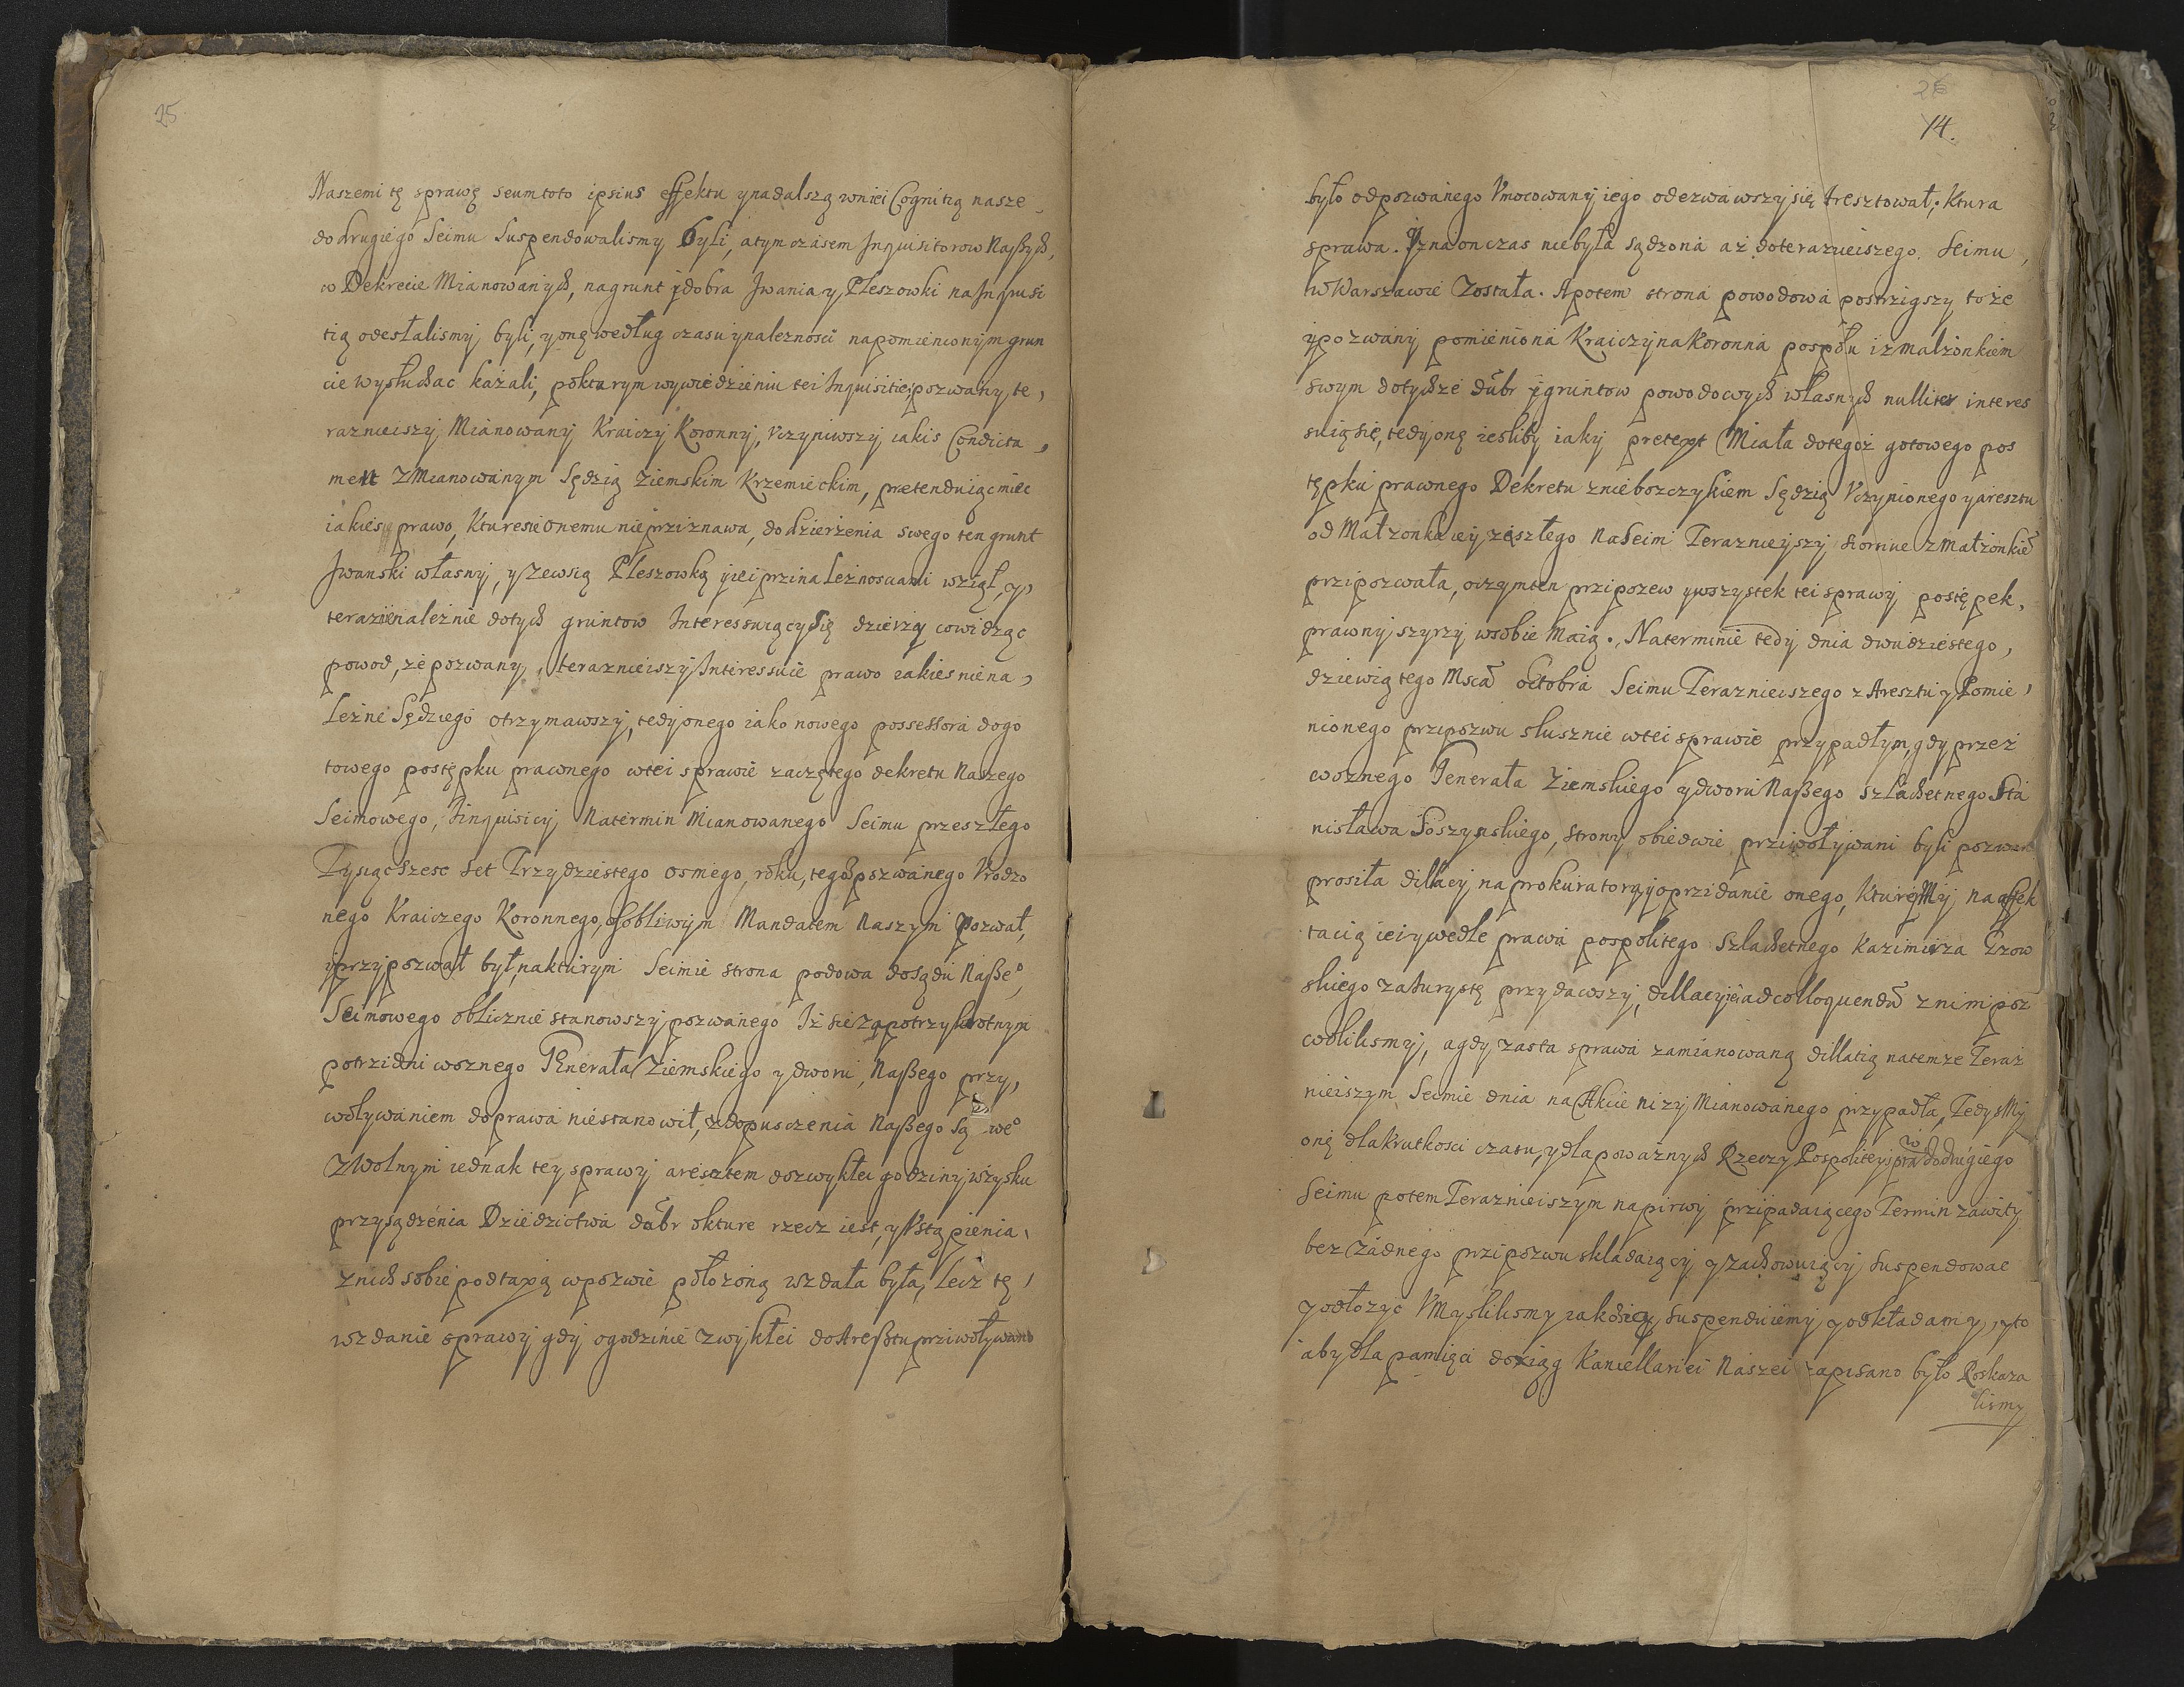 25
Naszemi tę sprawę seum toto ipsius effektu y na dalszą w niei Cognitią nasze
do drugiego Seimu Suspendowalismy byli, a tym czasem Inquisitorow Naßych,
w Dekrecie Mianowanych, na grunt y dobra Jwania y Pleszowki na Inquisi
tią odesłalismy byli, y onę według czasu y należnosci na pomienionym grun
cie wysłuchac kazali, po kturym wywiedzieniu tei Inquisitiei pozwany te,
raznieiszy Mianowany Kraiczy Koronny, Vczyniwszy iakis Condicta,
ment z Mianowanym Sędzią Ziemskim Krzemieckim, pretenduiąc miec
iakies prawo, Kture sie onemu nie przyznawa, do dzierżenia swego ten grunt
Jwanski własny, y ze wsią Pleszowką y iei przinależnosciami wziął, y,
teraz nienależnie do tych gruntow Interessuiący się dzierży co widząc
powod, że pozwany, teraznieiszy Interessuie prawo iakies niena,
leżne Sędziego otrzymawszy, tedy onego iako nowego possessora do go
towego postępku prawnego w tei sprawie zaczętego dekretu Naszego
Seimowego, Inquisicy Na termin Mianowanego Seimu przeszłego
Tysiąc szesc set Trzydziestego osmego, roku, tegoż pozwanego Vrodzo
nego Kraiczego Koronnego, osobliwym Mandatem Naszym pozwał,
y przypozwał był, na kturym Seimie strona podowa do sądu Naße°,
Seimowego oblicznie stanowszy pozwanego Iż sie za potrzykrotnym
po trzi dni woznego Generała Ziemskiego y dworu Naßego przy,
woływaniem do prawa nie stanowił, z dopuszczenia Naßego Są we°
Z Wolnym iednak tey sprawy aresztem do zwykłei godziny w zysku
przysądzenia Dziedzictwa dubr o kture rzecz iest, y Vstąpienia,
z nich sobie pod taxą w pozwie położoną wzdała była, lecz tę,
wzdanie sprawy gdy o godzinie zwykłei do Areßtu priwoływano
26
14.
było od pozwanego Vmocowany iego odezwawszy się Aresztował; Ktura
sprawa. Iż na on czas nie była sądzona aż do teraznieiszego Seimu,
w Warszawie Została. A potem strona powodowa postrzigszy to że
y pozwany pomieniona Kraiczyna Koronna pospołu i z małżonkiem
swym do tychże dubr y gruntow powodowych własnych nulliter interes
suią się, tedy onę iesliby iaky pretext Miała do tegoż gotowego pos
tępku prawnego Dekretu z nieboszczykiem Sędzią Vczynionego y aresztu
od Małżonka iey zeszłego Na Seim Teraznieyszy stornue z Małżonkiẽ
przipozwała, o czym ten przipozew y wszystek tei sprawy postępek,
prawny szyrzy w sobie maią. Na terminie tedy dnia dwudziestego,
dziewiątego Mscã octobra Seimu Teraznieiszego z Aresztu y Pomie,
nionego przypozwu słusznie w tei sprawie przypadłym, gdy przez
woznego Generała Ziemskiego y dworu Naßego szlachetnego Sta
nisława Soszynskiego, strony obiedwie priwoływani byli pozwa
prosiła dillacy na prokuratora y o przidanie onego, Kturey My na affek
tacią iei y wedle prawa pospolitego Szlachetnego Kazimierza Grow
skiego za Jurystę przydawszy, dillacyiei ad colloquendũ z nim poz
wolilismy, a gdy zas ta sprawa za mianowaną dillatią na temże Teraz
nieiszym Seimie dnia na Akcie niży Mianowanego przypadła, Tedy sMy
onę dla krutkosci czasu, y dla poważnych Rzeczy Pospolitey sprâ do drugiego
w
Seimu po tem Teraznieiszym napirwy przipadaiącego Termin zawity
bez żadnego przipozwu składaiący y zachowuiący Suspendowac
y odłożyc Vmyslilismy iakosz y suspenduiemy y odkładamy, y to
aby dla pamięci do xiąg Kancellariei Naszei zapisano było Roskaza
lismy